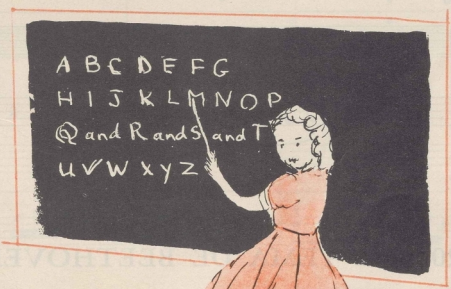 A B C D E F G
H I J K L M N O P
Q and R and S and T
U V W X Y Z